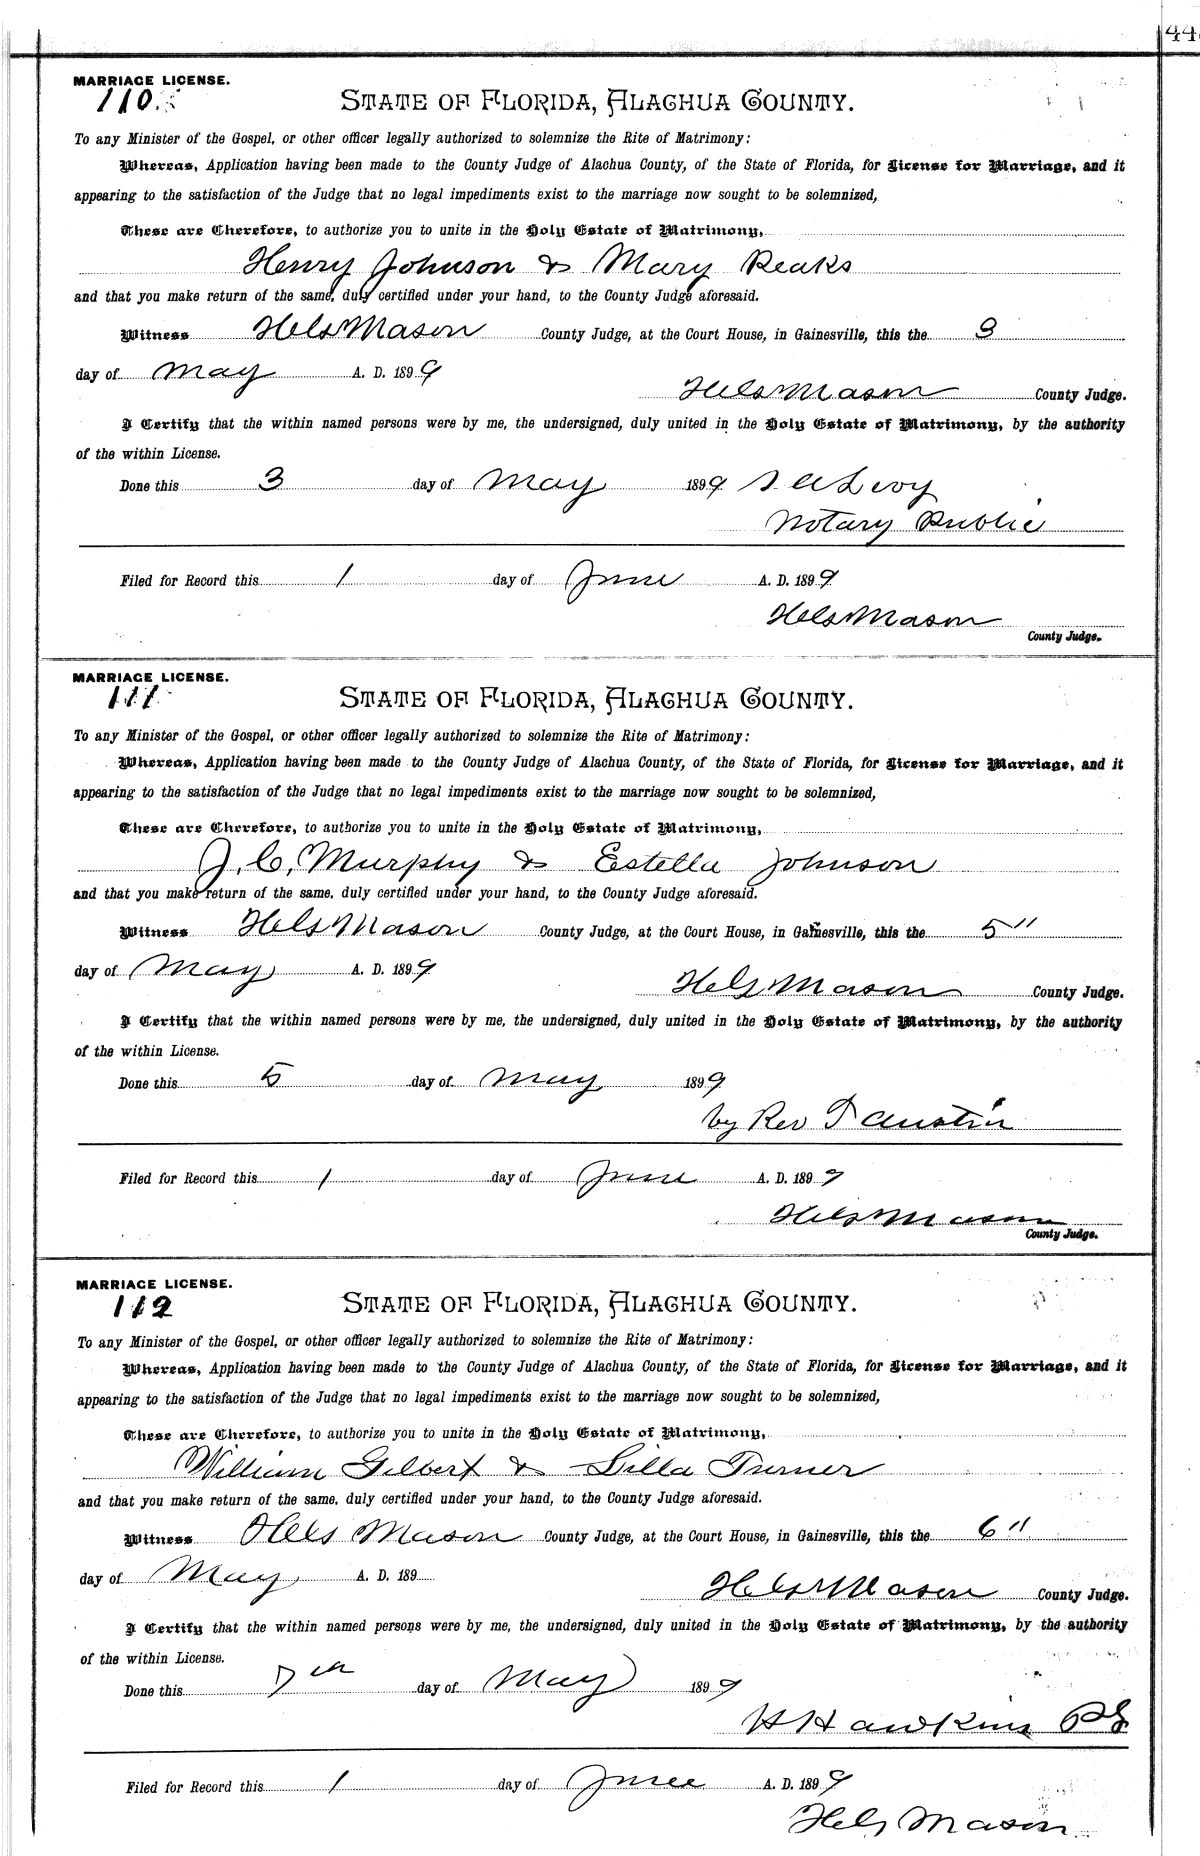 44
MARRIAGE LICENSE.
110.
STATE OF FLORIDA, ALACHUA COUNTY.
To any Minister of the Gospel, or other officer legally authorized to solemnize the Rite of Matrimony:
Whereas, Application having been made to the County Judge of Alachua County, of the State of Florida, for License for Marriage, and it
appearing to the satisfaction of the Judge that no legal impediments exist to the marriage now sought to be solemnized,
These are Therefore, to authorize you to unite in the Holy Estate of Matrimony,
Henry Johnson & Mary Reaks
and that you make return of the same, duly certified under your hand, to the County Judge aforesaid.
Witness Hels Mason County Judge, at the Court House, in Gainesville, this the 3
day of May A. D. 1899
Hels Mason County Judge.
I Certify that the within named persons were by me, the undersigned, duly united in the Holy Estate of Matrimony, by the authority
of the within License.
Done this 3 day of May 1899 Levy
Notary Public
Filed for Record this 1 day of June A. D. 1899
Hels Mason
County Judge.
MARRIAGE LICENSE.
111
STATE OF FLORIDA, ALACHUA COUNTY.
To any Minister of the Gospel, or other officer legally authorized to solemnize the Rite of Matrimony:
Whereas, Application having been made to the County Judge of Alachua County, of the State of Florida, for License for Marriage, and it
appearing to the satisfaction of the Judge that no legal impediments exist to the marriage now sought to be solemnized,
These are Therefore, to authorize you to unite in the Holy Estate of Matrimony,
J. C. Murphy & Estella Johnson
and that you make return of the same, duly certified under your hand, to the County Judge aforesaid.
Witness Hels Mason County Judge, at the Court House, in Gainesville, this the 5"
day of May A. D. 1899
Hels Mason County Judge.
I Certify that the within named persons were by me, the undersigned, duly united in the Holy Estate of Matrimony, by the authority
of the within License.
Done this 5 day of May 1899
by Rev T Austin
Filed for Record this 1 day of June A. D. 1899
Hels Mason
County Judge.
MARRIAGE LICENSE.
112
STATE OF FLORIDA, ALACHUA COUNTY.
To any Minister of the Gospel, or other officer legally authorized to solemnize the Rite of Matrimony:
Whereas, Application having been made to the County Judge of Alachua County, of the State of Florida, for License for Marriage, and it
appearing to the satisfaction of the Judge that no legal impediments exist to the marriage now sought to be solemnized,
These are Therefore, to authorize you to unite in the Holy Estate of Matrimony,
William Gilbert & Lilla Turner
and that you make return of the same, duly certified under your hand, to the County Judge aforesaid.
Witness Hels Mason County Judge, at the Court House, in Gainesville, this the 6"
day of May A. D. 189
Hels Mason County Judge.
I Certify that the within named persons were by me, the undersigned, duly united in the Holy Estate of Matrimony, by the authority
of the within License.
Done this 7th day of May 1899
H Hawkins
Filed for Record this 1 day of June A. D. 1899
Hels Mason